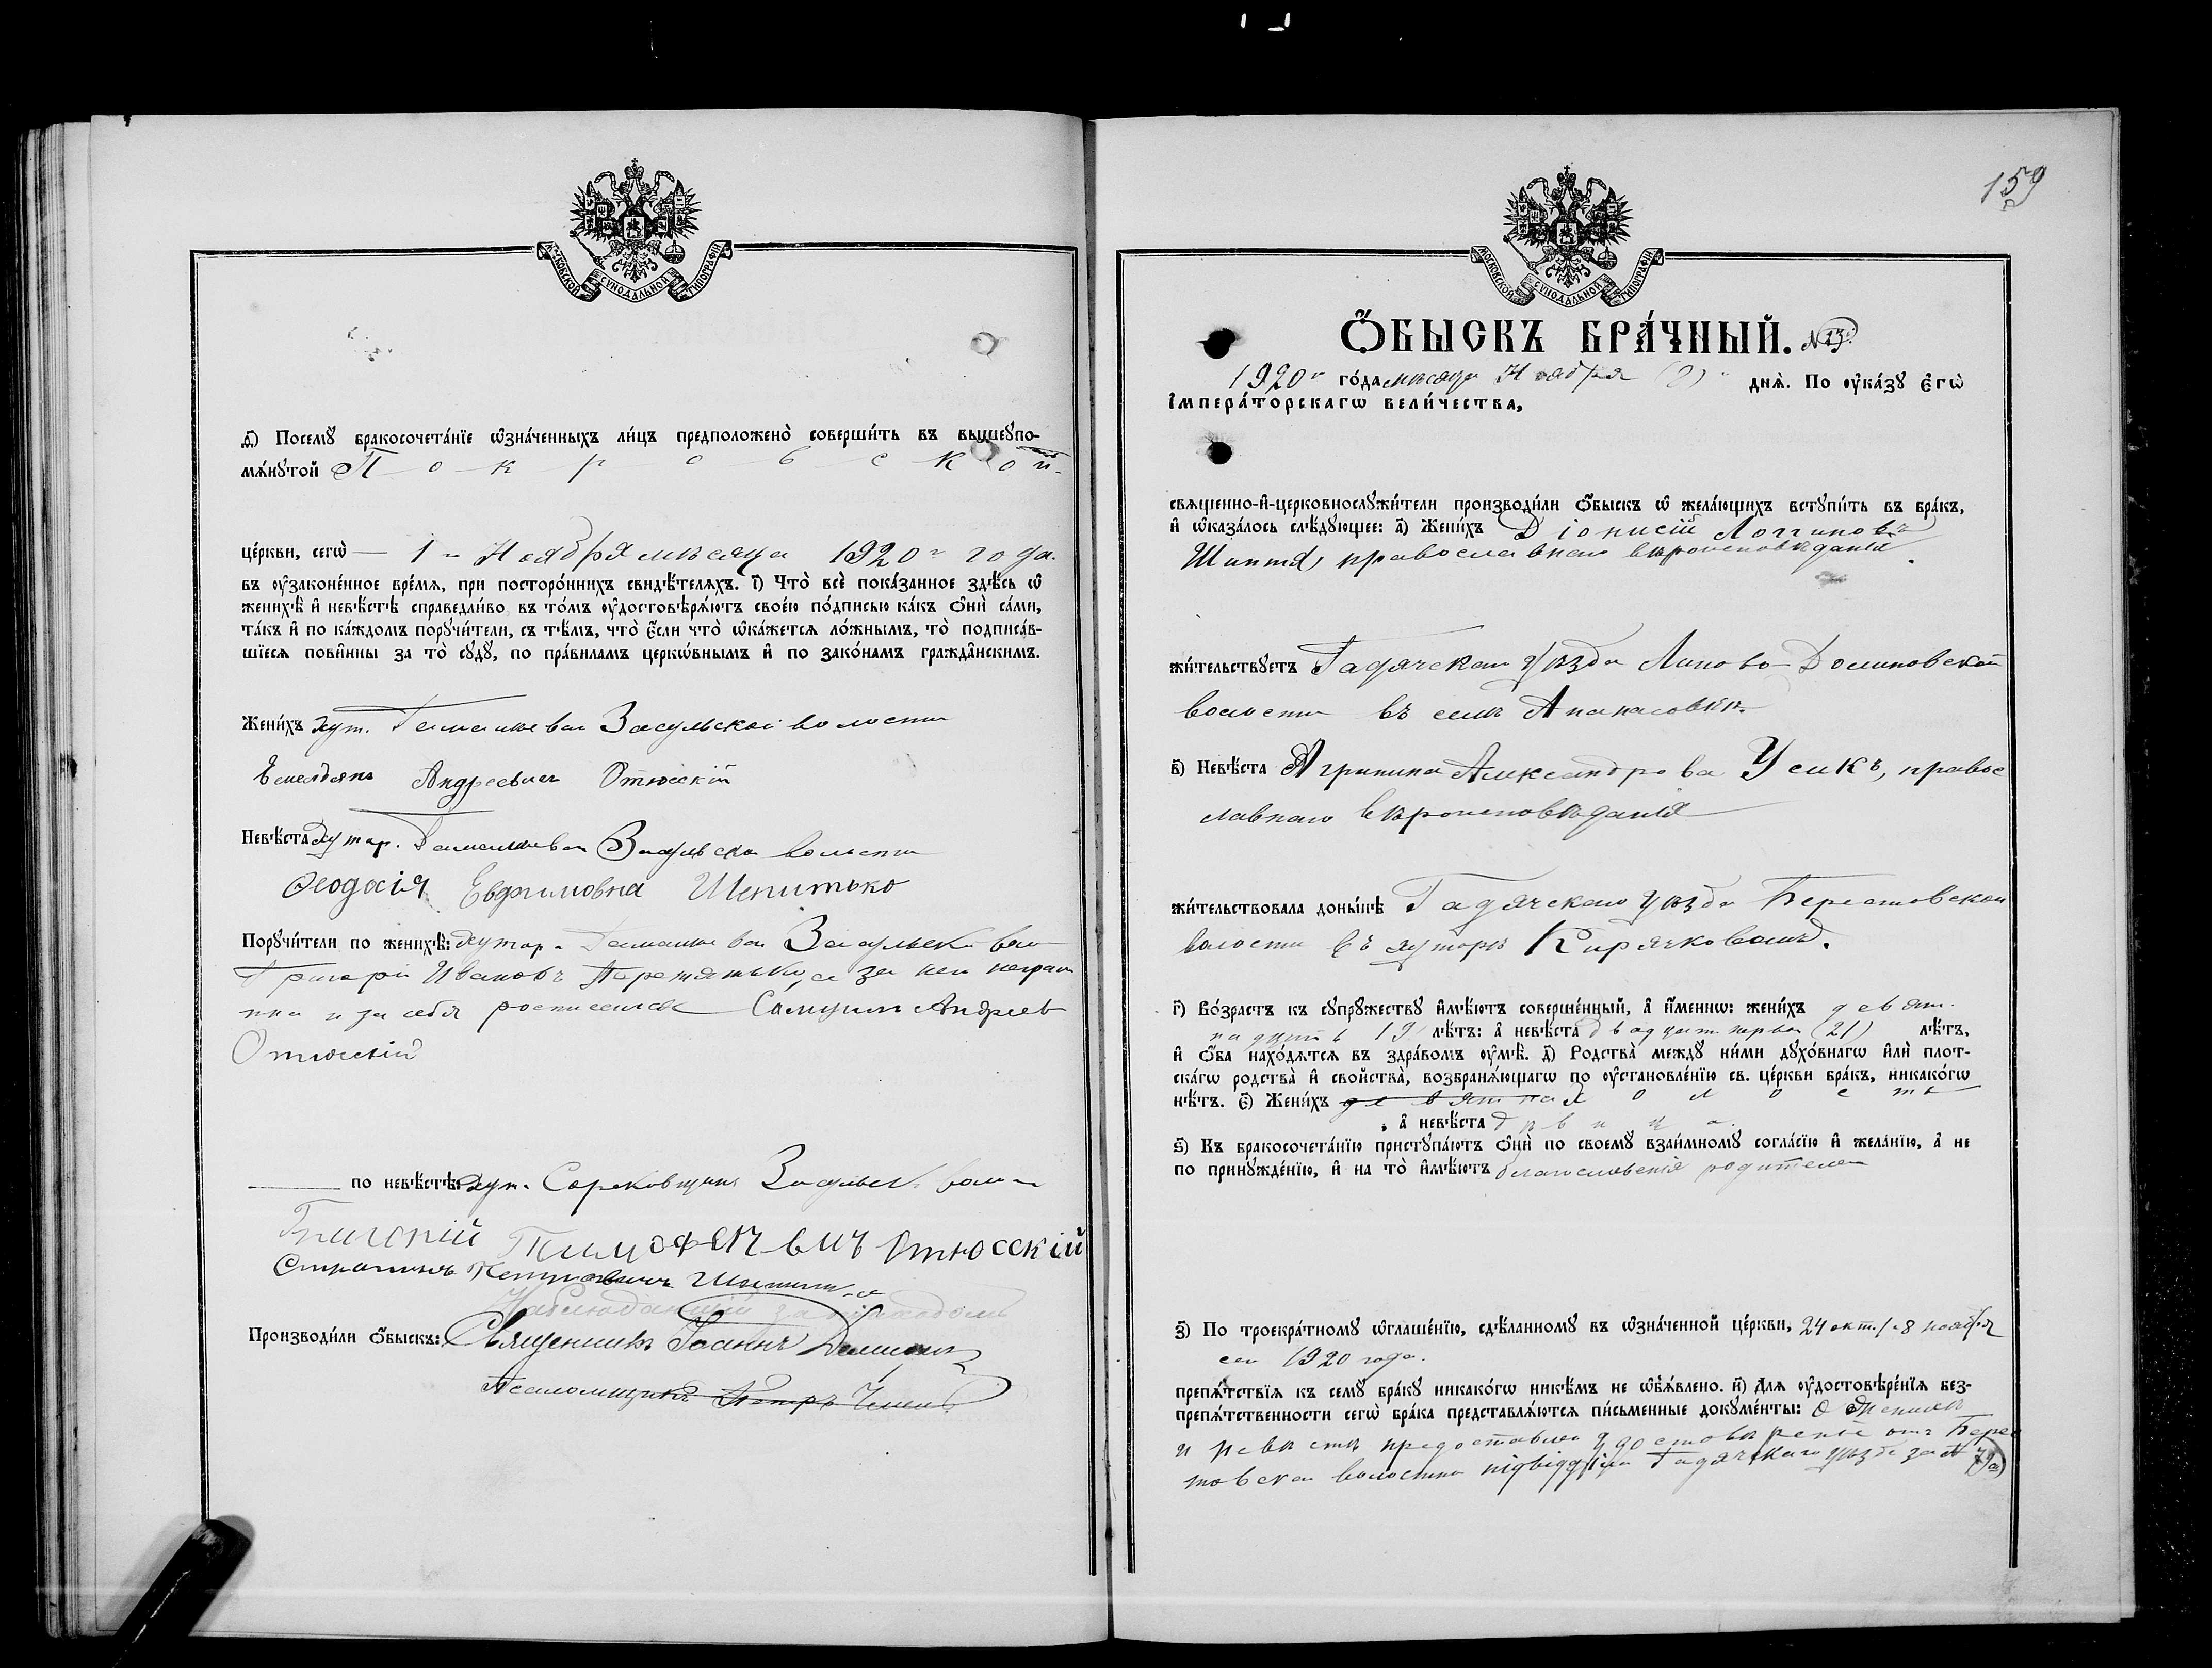 МОСКОВСКОЙ СѴНОДАЛЬНОЙ ТИПОГРАФІИ
ѳ҃) Посемꙋ бракосочета́нїе ѡ҆зна́ченныхъ ли́цъ предположено̀ соверши́ть въ вышеꙋпо-
мѧ́нꙋтой Покровской
це́ркви, сегѡ̀ — 1 го Ноября месяца 1920 г года.
въ ᲂу҆зако́ненное вре́мѧ, при посторо́ннихъ свидѣ́телѧхъ. і҃) Что̀ всѐ пока́занное здѣ́сь ѡ҆
женихѣ̀ и҆ невѣ́стѣ справедли́во въ то́мъ ᲂу҆достовѣрѧ́ютъ свое́ю по́дписью ка́къ ѻ҆нѝ са́ми,
та́къ и҆ по ка́ждомъ порꙋчи́тели, съ тѣ́мъ, что̀ є҆́сли что̀ ѡ҆ка́жетсѧ ло́жнымъ, то̀ подписа́в-
шїесѧ пови́нны за то̀ сꙋдꙋ, по пра́виламъ церкѡ́внымъ и҆ по зако́намъ гражда́нскимъ.
Жени́хъ хут. Засульской волости
Емельянъ Андреевичъ Отюсскій
Невѣ́ста хутор. Засульской волости
Ѳеодосія Евфимовна Шепитько
Порꙋчи́тели по женихѣ̀: хутор. Засульск. вол
Григорій Ивановъ а за нег неграм
тна и за себя росписался Самуилъ Андреев
Отюсскій
по невѣ́стѣ: хут. Засульск. вол
Григорій Тимофеевичъ Отюсскій
Петровичъ
Производи́ли ѻ҆́быскъ: Священникъ Іоаннъ
Псаломщикъ Петръ
159
МОСКОВСКОЙ СѴНОДАЛЬНОЙ ТИПОГРАФІИ
Ѻ҆́БЫСКЪ БРА́ЧНЫЙ. N
1920 г го́да месяца Ноября днѧ̀. По ᲂу҆ка́зꙋ Є҆гѡ̀
І҆мпера́торскагѡ вели́чества,
свѧщенно-и҆-церковнослꙋжи́тели производи́ли ѻ҆́быскъ ѡ҆ жела́ющихъ встꙋпи́ть въ бра́къ,
и҆ ѡ҆каза́лось слѣ́дꙋющее: а҃) Жени́хъ Діонисій Логгиновъ
православнаго вѣроисповѣданія.
жи́тельствꙋетъ Гадячскаго уѣзда Липово-Долинской
волости въ селѣ Апанасовкѣ.
в҃) Невѣ́ста Агрипина Александрова Усикъ, правос
лавнаго вѣроисповѣданія
жи́тельствовала доны́нѣ Гадячскаго уѣзда Берестовской
волости въ хуторѣ
г҃) Во́зрастъ къ сꙋпрꙋ́жествꙋ и҆мѣ́ютъ соверше́нный, а҆ и҆́меннѡ: жени́хъ девят
надцать 19 лѣ́тъ: а҆ невѣ́ста двадцать перва (21) лѣ́тъ,
и҆ ѻ҆́ба нахо́дѧтсѧ въ здра́вомъ ᲂу҆мѣ̀. д҃) Родства̀ междꙋ ни́ми дꙋхо́внагѡ и҆лѝ плот-
ска́гѡ родства̀ и҆ свойства̀, возбранѧ́ющагѡ по ᲂу҆становле́нїю св. це́ркви бра́къ, никако́гѡ
нѣ́тъ. є҃) Жени́хъ девятна холостъ
, а҆ невѣ́ста дѣвица.
ѕ҃) Къ бракосочета́нїю пристꙋпа́ютъ ѻ҆нѝ по своемꙋ̀ взаи́мномꙋ согла́сїю и҆ жела́нїю, а҆ не
по принꙋжде́нїю, и҆ на то̀ и҆мѣ́ютъ благословенія родителей
з҃) По троекра́тномꙋ ѡ҆глаше́нїю, сдѣ́ланномꙋ въ ѡ҆зна́ченной це́ркви, 24 окт. 1 и 8 ноября
сего 1920 года.
препѧ́тствїѧ къ семꙋ̀ бра́кꙋ никако́гѡ никѣ́мъ не ѡ҆б̾ѧ́влено. и҃) Длѧ ᲂу҆достовѣре́нїѧ без-
препѧ́тственности сегѡ̀ бра́ка представлѧ́ютсѧ пи́сьменные докꙋме́нты: о женихѣ
и невѣстѣ предоставлен удостоверение отъ Берес
товской волостно підвідділа Гадячскаго уѣзда за №